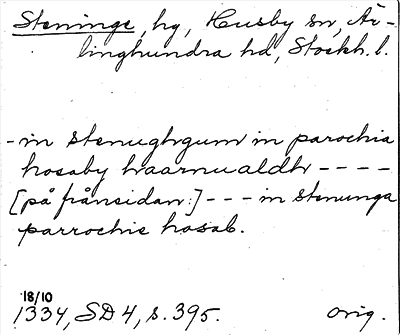 Steninge, hg, Husby sn, Är-
linghundra hd, Stockh. l.
-in stenughgum in parochia
hosaby haarnualdh ----
[på frånsidan:] --- in stenunga
parrochie hosab.
18/10
1334, SD 4, s. 395. orig.